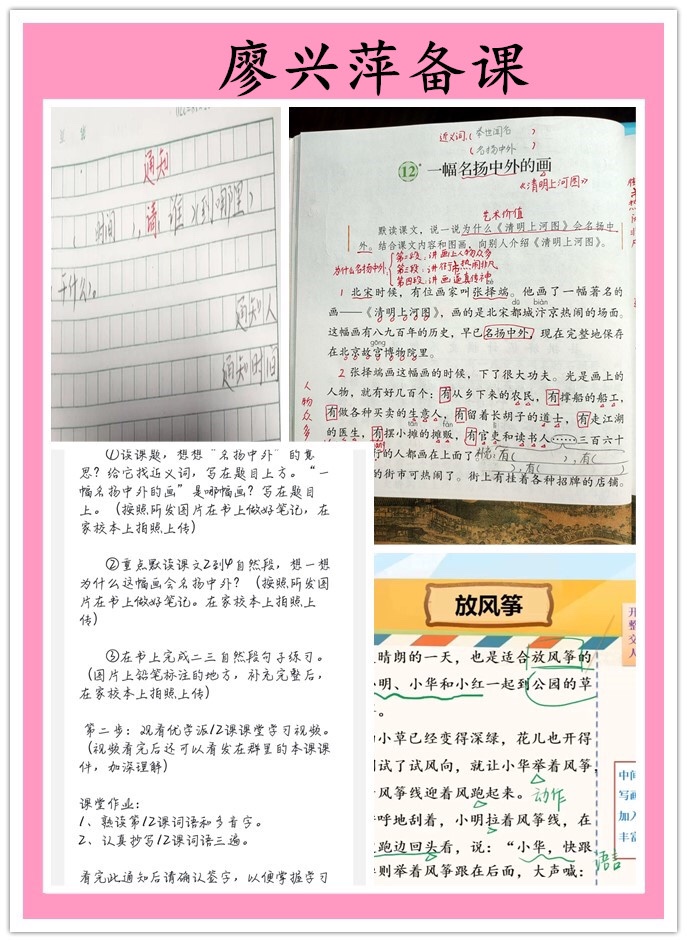 廖兴萍备课
通知
(时间),请谁(到哪里)
干什么。
通知人
通知时间
近义词(举世闻名)
(名扬中外)
12* 一幅名扬中外的画
《清明上河图》
艺术价值
默读课文,说一说为什么《清明上河图》会名扬中
外。结合课文内容和图画,向别人介绍《清明上河图》。
为什么名扬中外
第二段:讲画上人物众多
第三段:讲街市热闹非凡
第四段:讲画逼真传神。
1 北宋时候,有位画家叫张择端。他画了一幅著名的
dū biàn
画——《清明上河图》,画的是北宋都城汴京热闹的场面。
这幅画有八九百年的历史,早已名扬中外,现在完整地保存
gōng
在北京故宫博物院里。
2 张择端画这幅画的时候,下了很大功夫。光是画上的
人物,就有好几百个:有从乡下来的农民,有撑船的船工,
有做各种买卖的生意人,有留着长胡子的道士,有走江湖
tān fàn
的医生,有摆小摊的摊贩,有官吏和读书人……三百六十
行的人都画在上面了 有( ),有(
),有( )
的街市可热闹了。街上有挂着各种招牌的店铺。
人物众多
①读课题,想想“名扬中外”的意
思?给它找近义词,写在题目上方。“一
幅名扬中外的画”是哪幅画?写在题目
上。(按照所发图片在书上做好笔记,在
家校本上拍照上传)
②重点默读课文2到4自然段,想一想
为什么这幅画会名扬中外?(按照所发图
片在书上做好笔记。在家校本上拍照上
传)
③在书上完成二三自然段句子练习。
(图片上铅笔标注的地方,补充完整后,
在家校本上拍照上传)
第二步:观看优学派12课课堂学习视频。
(视频看完后还可以看发在群里的本课课
件,加深理解)
课堂作业:
1、熟读第12课词语和多音字。
2、认真抄写12课词语三遍。
看完此通知后请确认签字,以便掌握学习
放风筝
晴朗的一天,也是适合放风筝的
小明、小华和小红一起到公园的草
。
小草已经变得深绿,花儿也开得
试了试风向,就让小华举着风筝,
风筝线迎着风跑起来。
动作
呼地刮着,小明拉着风筝线,在
边跑边回头看,说:“小华,快跟
则举着风筝跟在后面,大声喊:
语言
开
整
交
人
中间
写画
加入
丰富